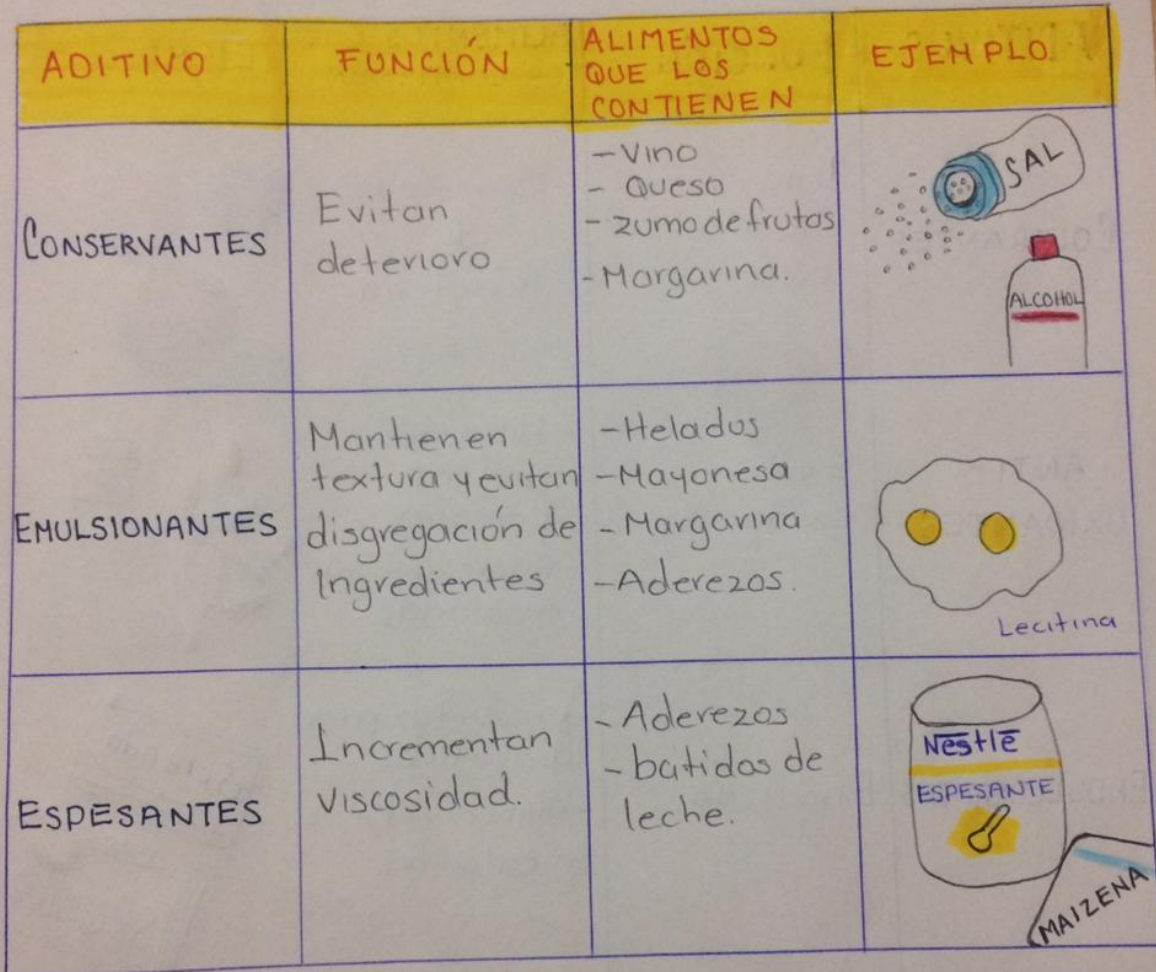 ADITIVO
FUNCIÓN
ALIMENTOS
QUE LOS
CONTIENEN
EJEMPLO
CONSERVANTES
Evitan
deterioro
- Vino
- Queso
- zumo de frutas
- Margarina.
SAL
ALCOHOL
EMULSIONANTES
Mantienen
textura y evitan
disgregación de
Ingredientes
- Helados
- Mayonesa
- Margarina
- Aderezos.
Lecitina
ESPESANTES
Incrementan
viscosidad.
- Aderezos
- batidos de
leche.
Nestlē
ESPESANTE
MAIZENA